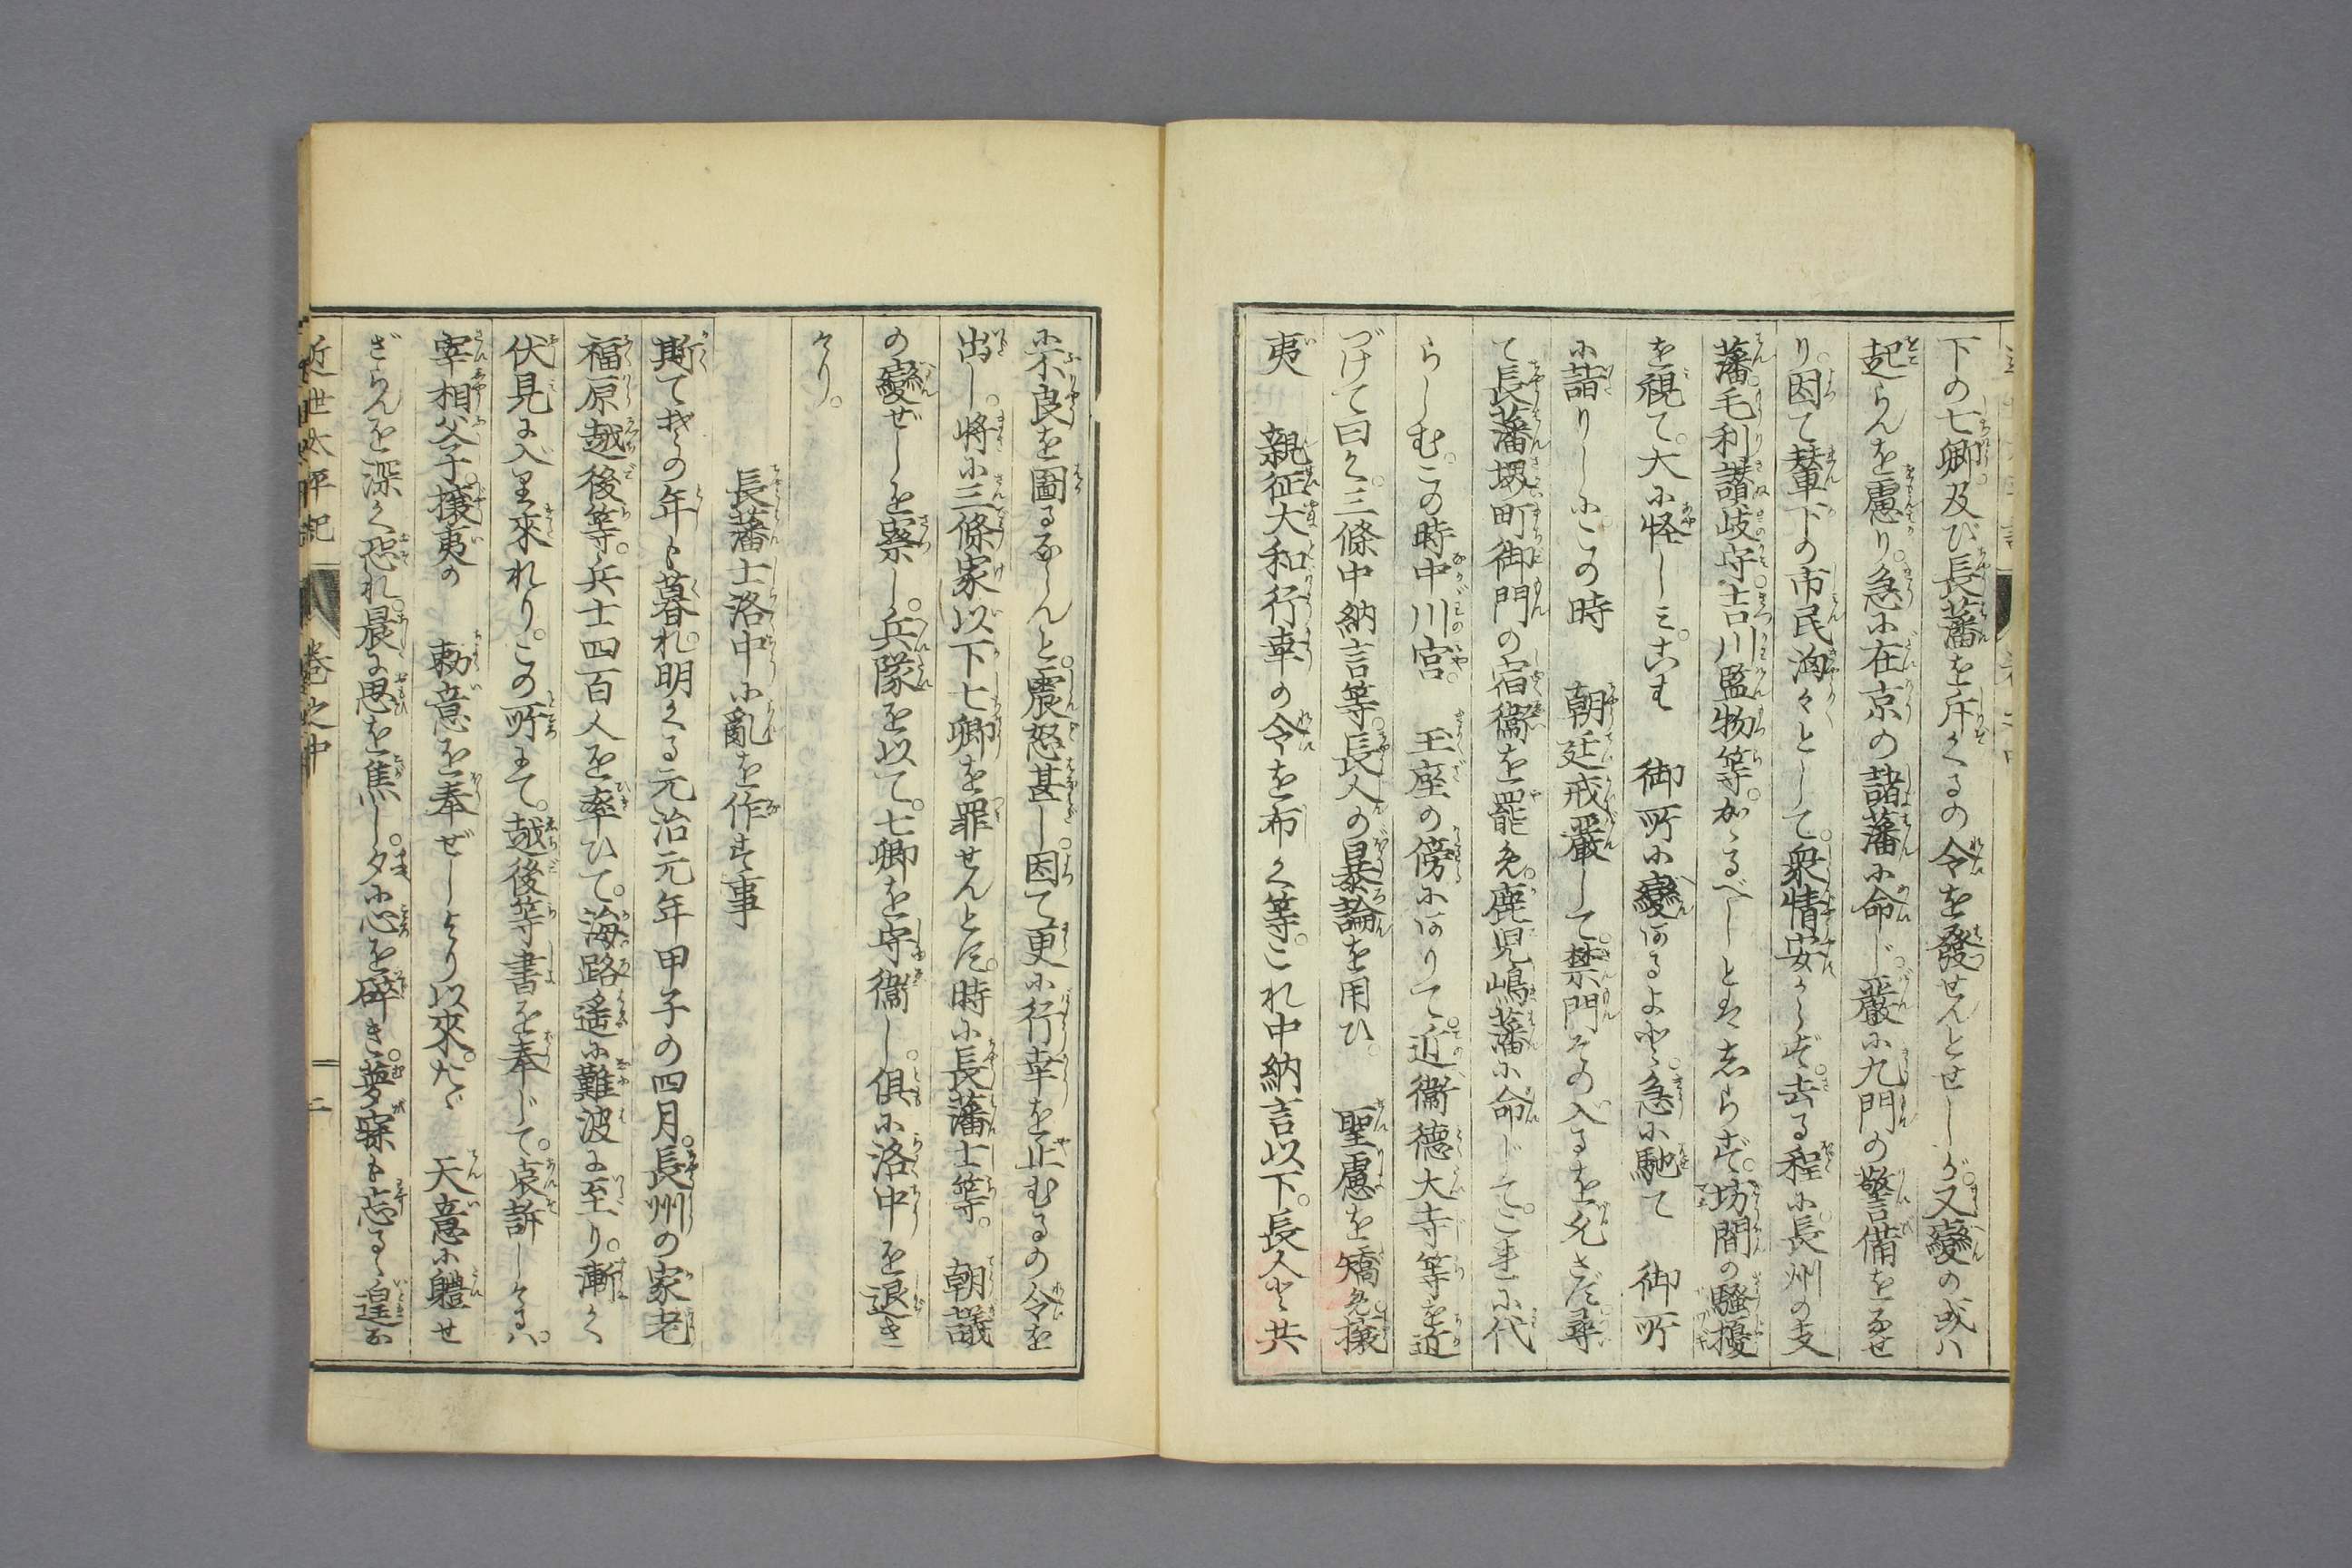 下の七卿及び長藩を斥くるの令を發せんとせしが又變の或ハ
起らんを慮り。急に在京の諸藩に命じ。嚴に九門の警備をなせ
り。因て輦下の市民洶々として。衆情安からず。去る程に長州の支
藩毛利讃岐守。吉川監物等。かゝるべしとはしらず。坊間の騒擾
を視て。大に怪しミ。こは　御所に變あるよと。急に馳て　御所
に詣りしに。この時　朝廷戒嚴して。禁門その入るを允さず。尋
て長藩堺町御門の宿衞を罷免。鹿児嶋藩に命じて。これに代
らしむ。この時中川宮。　玉座の傍にありて。近衞德大寺等を近
づけて曰く。三條中納言等。長人の暴論を用ひ。　聖慮を矯め。攘
夷　親征大和行幸の令を布く等。これ中納言以下。長人と共
に不良を圖るならんと。震怒甚し。因て更に行幸を止むるの令を
出し。將に三條家以下七卿を罪せんとす。時に長藩士等。朝議
の變ぜしを察し。兵隊を以て。七卿を守衞し。倶に洛中を退き
けり。
長藩士洛中に亂を作す事
斯て其の年も暮れ。明くる元治元年甲子の四月。長州の家老
福原越後等。兵士四百人を率ひて。海路遙に難波に至り。漸く
伏見に入り來れり。この所にて。越後等書を奉じて。哀訴しけるハ。
宰相父子。攘夷の　勅意を奉ぜしより以來。たゞ　天意に軆せ
ざらんを深く恐れ。晨に思を焦し。夕に心を碎き。夢寐も忘るゝ遑な
近世太平記　巻之中　二